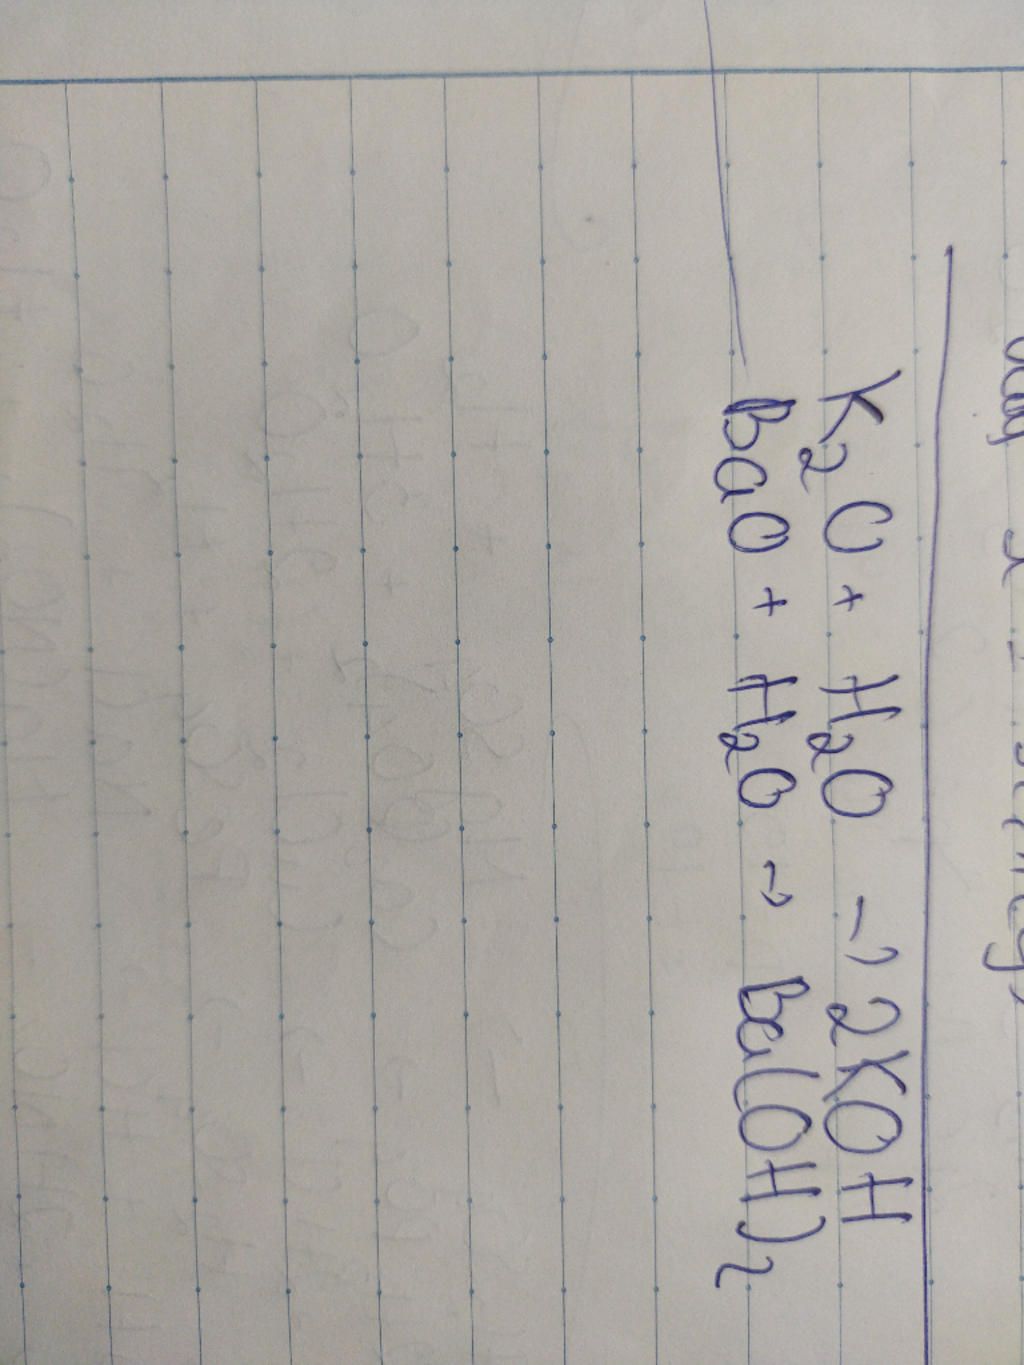 K₂O + H₂O → 2KOH
BaO + H₂O → Ba(OH)₂